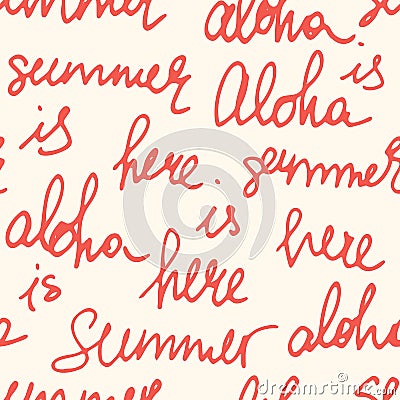 summer aloha
summer is
Aloha
is here. summer
is
aloha here here
is
Summer aloha
dreamstime.com